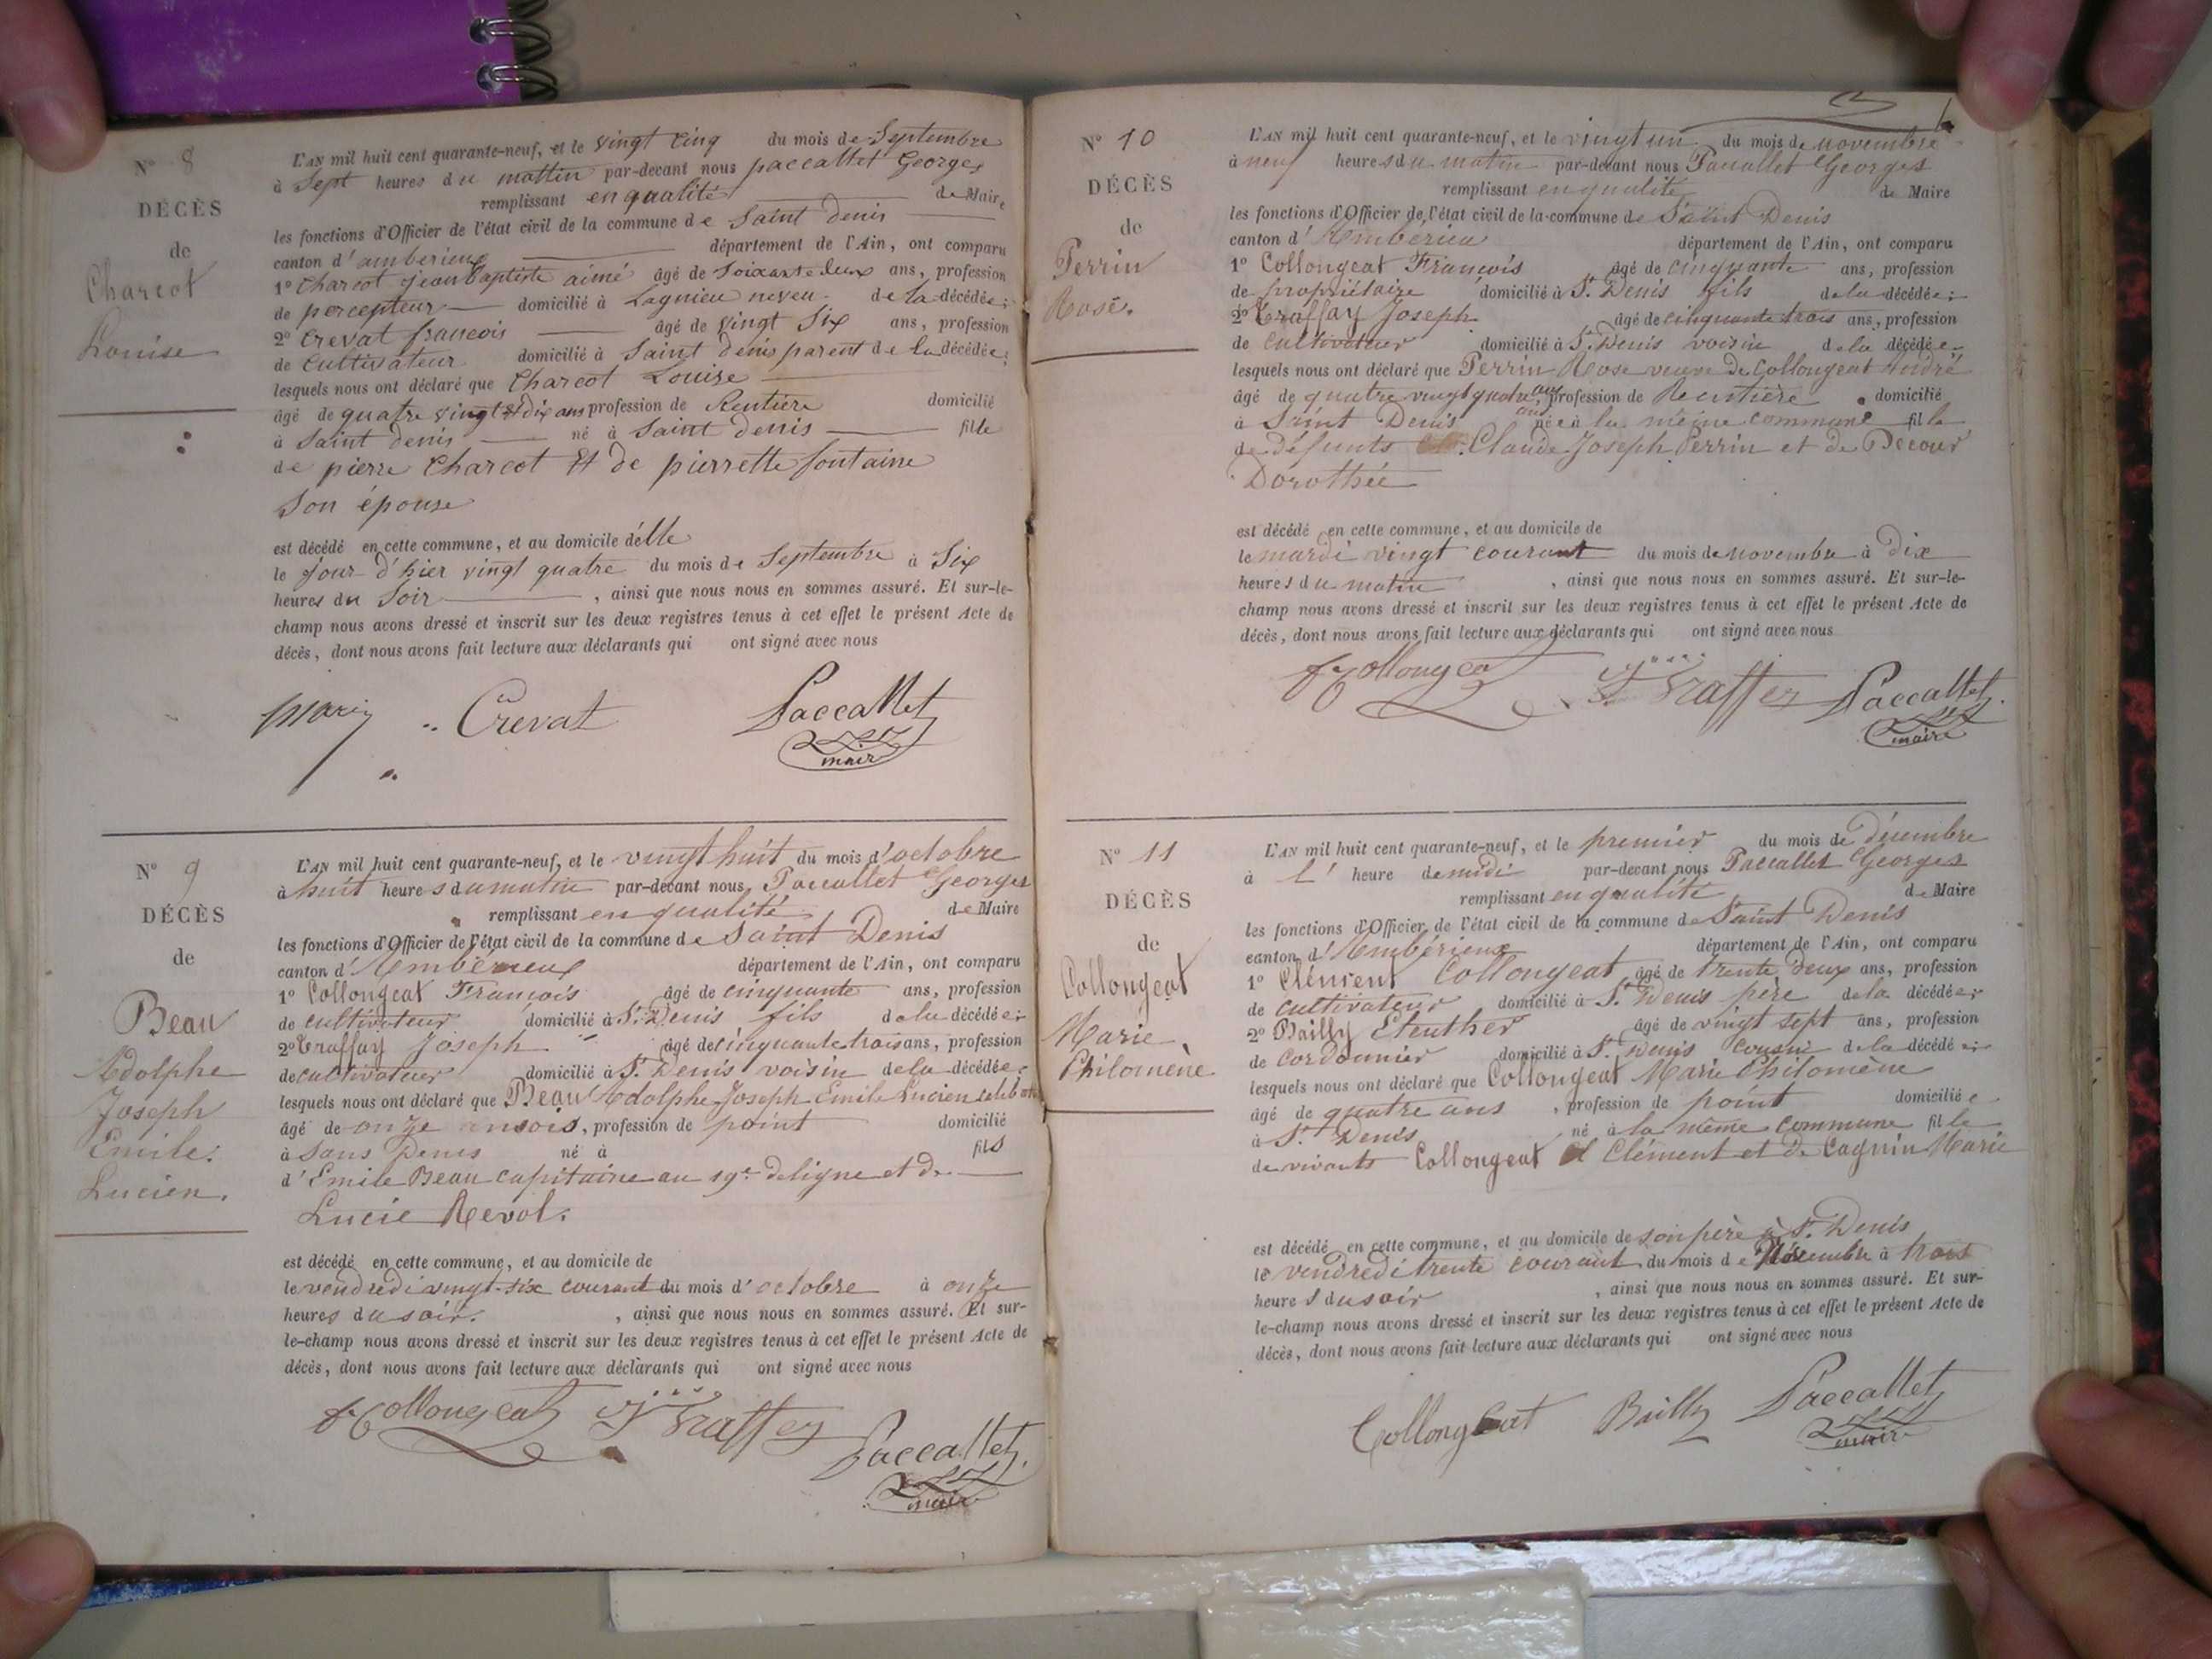 N° 8
DÉCÈS
de
Charcot
Louise
L'AN mil huit cent quarante-neuf, et le vingt cinq du mois de Septembre
à Sept heures du mattin par-devant nous paccallet Georges
remplissant en qualité de Maire
les fonctions d'Officier de l'état civil de la commune de Saint denis
canton d'amberieux département de l'Ain, ont comparu
1° Charcot jean Baptiste aimé âgé de Soixante deux ans, profession
de percepteur domicilié à Lagnieu neveu de la décédée;
2° Crevat francois âgé de vingt Six ans, profession
de Cultivateur domicilié à Saint denis parent de la décédée;
lesquels nous ont déclaré que Charcot Louise
âgé de quatre vingt et dix ans profession de Rentière domicilié
à Saint denis né à Saint denis fille
de pierre Charcot Et de pierrette fontaine
Son épouse
est décédé en cette commune, et au domicile d'elle
le jour d'hier vingt quatre du mois de Septembre à Six
heures du Soir , ainsi que nous nous en sommes assuré. Et sur-le-
champ nous avons dressé et inscrit sur les deux registres tenus à cet effet le présent Acte de
décès, dont nous avons fait lecture aux déclarants qui ont signé avec nous
Crevat Paccallet
maire
N° 9
DÉCÈS
de
Beau
Adolphe
Joseph
Emile.
Lucien.
L'AN mil huit cent quarante-neuf, et le vingt huit du mois d'octobre
à huit heures du matin par-devant nous, Paccallet Georges
remplissant en qualité de Maire
les fonctions d'Officier de l'état civil de la commune de Saint Denis
canton d'Ambérieux département de l'Ain, ont comparu
1° Collongeat François âgé de cinquante ans, profession
de cultivateur domicilié à St. Denis fils de la décédée;
2° Traffay Joseph âgé de cinquante trois ans, profession
de cultivateur domicilié à St. Denis voisin de la décédée;
lesquels nous ont déclaré que Beau Adolphe Joseph Emile Lucien
âgé de onze mois, profession de point domicilié
à Sans Denis né à fils
d'Emile Beau capitaine au 19e de ligne et de
Lucie Revol.
est décédé en cette commune, et au domicile de
le vendredi vingt-six courant du mois d'octobre à onze
heures du soir. , ainsi que nous nous en sommes assuré. Et sur-
le-champ nous avons dressé et inscrit sur les deux registres tenus à cet effet le présent Acte de
décès, dont nous avons fait lecture aux déclarants qui ont signé avec nous
Collongeat Traffey
Paccallet
maire
N° 10
DÉCÈS
de
Perrin
Rose.
L'AN mil huit cent quarante-neuf, et le vingt un du mois de novembre
à neuf heures du matin par-devant nous Paccallet Georges
remplissant en qualité de Maire
les fonctions d'Officier de l'état civil de la commune de Saint Denis
canton d'Ambérieu département de l'Ain, ont comparu
1° Collongeat François âgé de cinquante ans, profession
de propriétaire domicilié à St. Denis fils de la décédée;
2° Traffay Joseph âgé de cinquante trois ans, profession
de cultivateur domicilié à St. Denis voisin de la décédée
lesquels nous ont déclaré que Perrin Rose veuve de Collongeat André
âgé de quatre vingt quatre ans, profession de Rentière domicilié
à Saint Denis née à la même commune fille
de défunts Claude Joseph Perrin et de Decour
Dorothée
est décédé en cette commune, et au domicile de
le mardi vingt courant du mois de novembre à Dix
heures du matin , ainsi que nous nous en sommes assuré. Et sur-le-
champ nous avons dressé et inscrit sur les deux registres tenus à cet effet le présent Acte de
décès, dont nous avons fait lecture aux déclarants qui ont signé avec nous
Collongeat Traffey Paccallet
maire
N° 11
DÉCÈS
de
Collongeat
Marie
Philomène
L'AN mil huit cent quarante-neuf, et le premier du mois de Décembre
à l' heure de midi par-devant nous Paccallet Georges
remplissant en qualité de Maire
les fonctions d'Officier de l'état civil de la commune de Saint Denis
canton d'Ambérieux département de l'Ain, ont comparu
1° Clément Collongeat âgé de trente deux ans, profession
de cultivateur domicilié à St. Denis père de la décédée;
2° Bailly Eleuther âgé de vingt sept ans, profession
de cordonnier domicilié à St. Denis cousin de la décédée;
lesquels nous ont déclaré que Collongeat Marie Philomène
âgé de quatre ans , profession de point domiciliée
à St. Denis né à la même commune fille
de vivants Collongeat Clément et de Cagnin Marie
est décédé en cette commune, et au domicile de son père à St. Denis
le vendredi trente courant du mois de à trois
heures du soir , ainsi que nous nous en sommes assuré. Et sur-
le-champ nous avons dressé et inscrit sur les deux registres tenus à cet effet le présent Acte de
décès, dont nous avons fait lecture aux déclarants qui ont signé avec nous
Collongeat Bailly Paccallet
maire